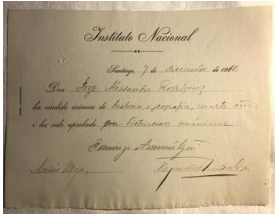 Instituto Nacional
Santiago, 7 de diciembre de 19
Don Jorge Alessandri Rodríguez
ha rendido exámen de historia i geografía, cuarto año,
i ha sido aprobado por distincion unánime
Domingo Amunátegui